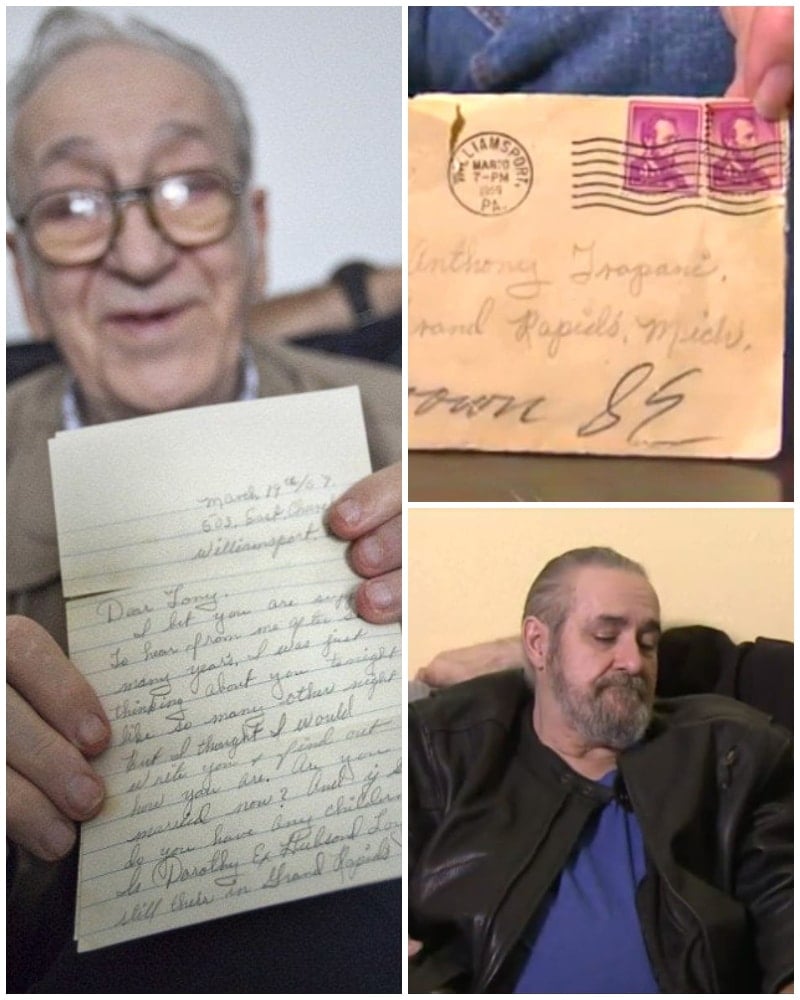 March 19th/
603 East
Williamsport
Dear Tony.
I bet you are
To hear from me after
many years. I was just
thinking about you tonight
like so many other night
But I thought I would
write you & find out
how you are. Are you
married now? And if
do you have any children
Is Dorothy Ex Husband
still there in Grand Rapids
LIAMSPORT,
MAR
7-PM
1959
PA.
Anthony Trapani.
rand Rapids, Mich.
own